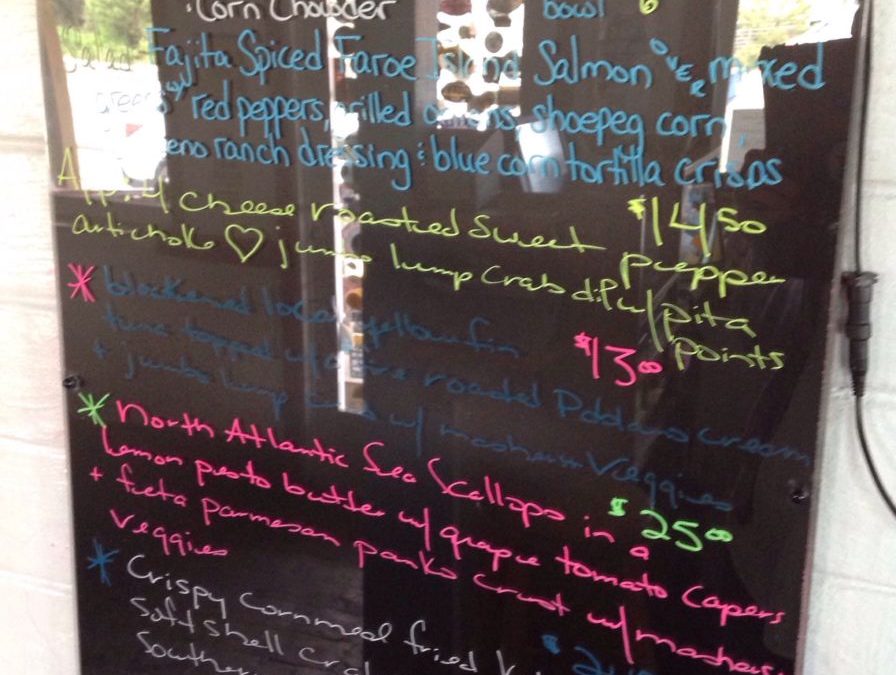 Corn Chowder bowl 6
Fajita Spiced Faroe Island Salmon over mixed
greens w/ red peppers, grilled onions, shoepeg corn,
ranch dressing & blue corn tortilla crisps
App: 4 cheese roasted Sweet $14.50
pepper
artichoke ♡ jumbo lump crab dip w/ pita
points
* blackened local yellowfin $13.00
tuna topped w/ fire roasted Poblano cream
+ jumbo lump w/ mashers veggies
* North Atlantic Sea Scallops in a $25.00
lemon pesto butter w/ grape tomato capers
+ feta parmesan panko crust w/ mashers
veggies
* Crispy cornmeal fried
Soft shell
Southern